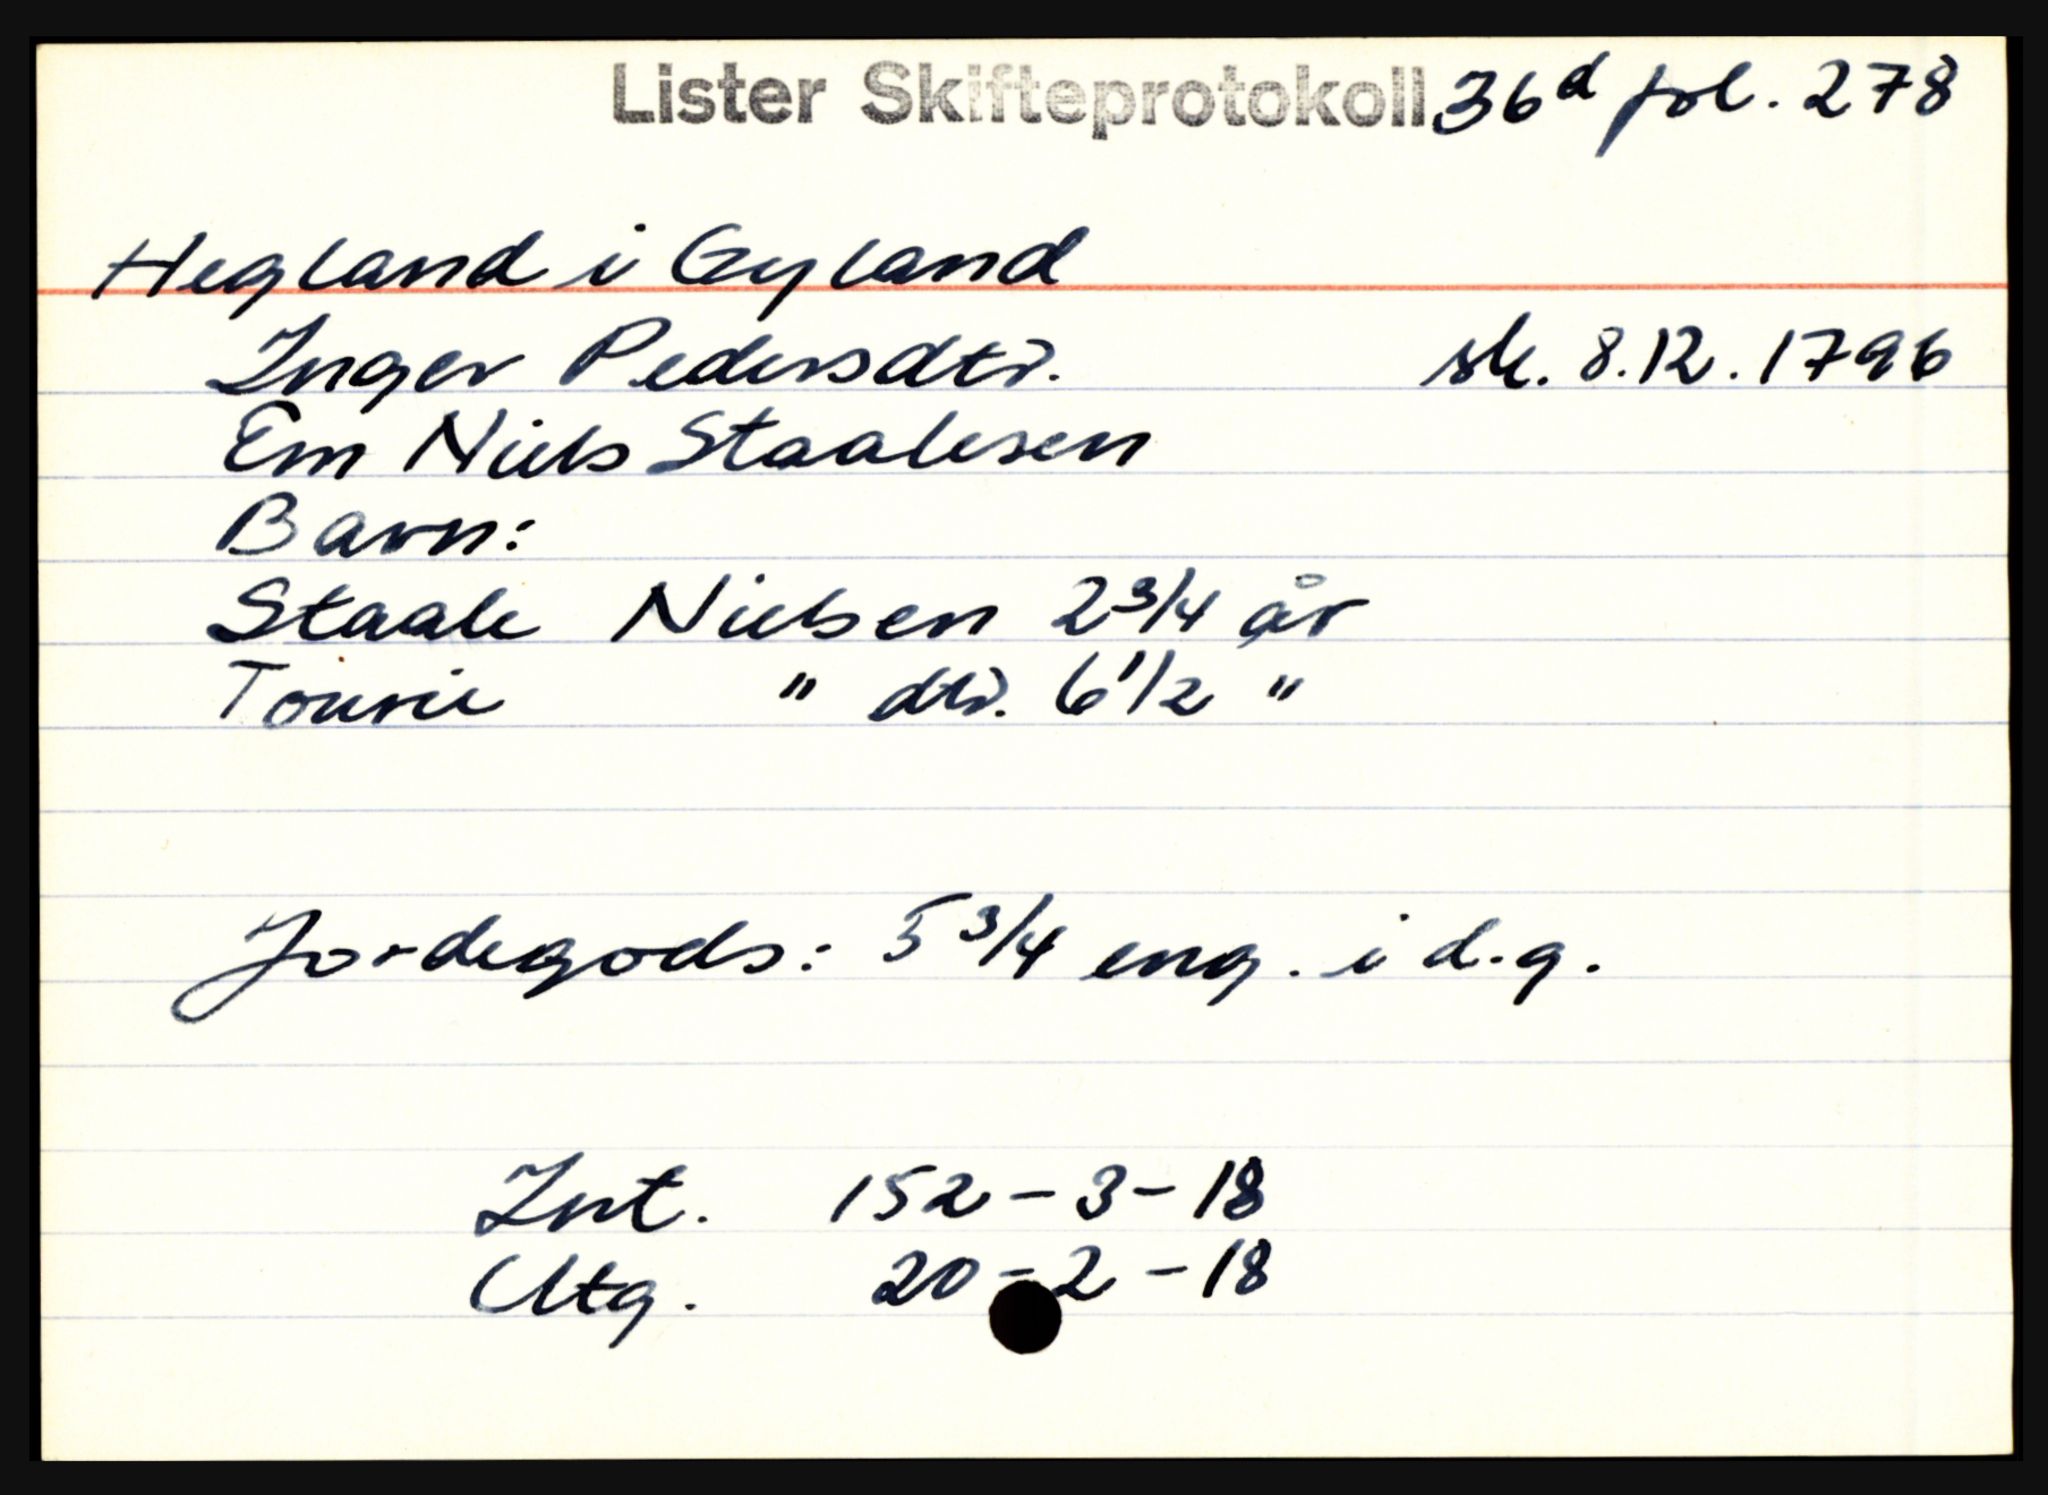 Lister Skifteprotokoll 36d fol. 278
Hegland i Gyland
Inger Pedersdtr. sk. 8.12.1796
Em Niels Staalesen
Barn:
Staale Nielsen 2 3/4 år
" dtr. 6 1/2 "
Jordegods: 5 3/4 eng. i d.g.
Int. 152-3-18
Utg. 20-2-18